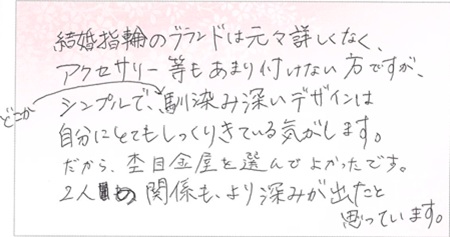 結婚指輪のブランドは元々詳しくなく、
アクセサリー等もあまり付けない方ですが、
シンプルで、どこか馴染み深いデザインは
自分にとてもしっくりきている気がします。
だから、杢目金屋を選んでよかったです。
2人の関係も、より深みが出たと
思っています。